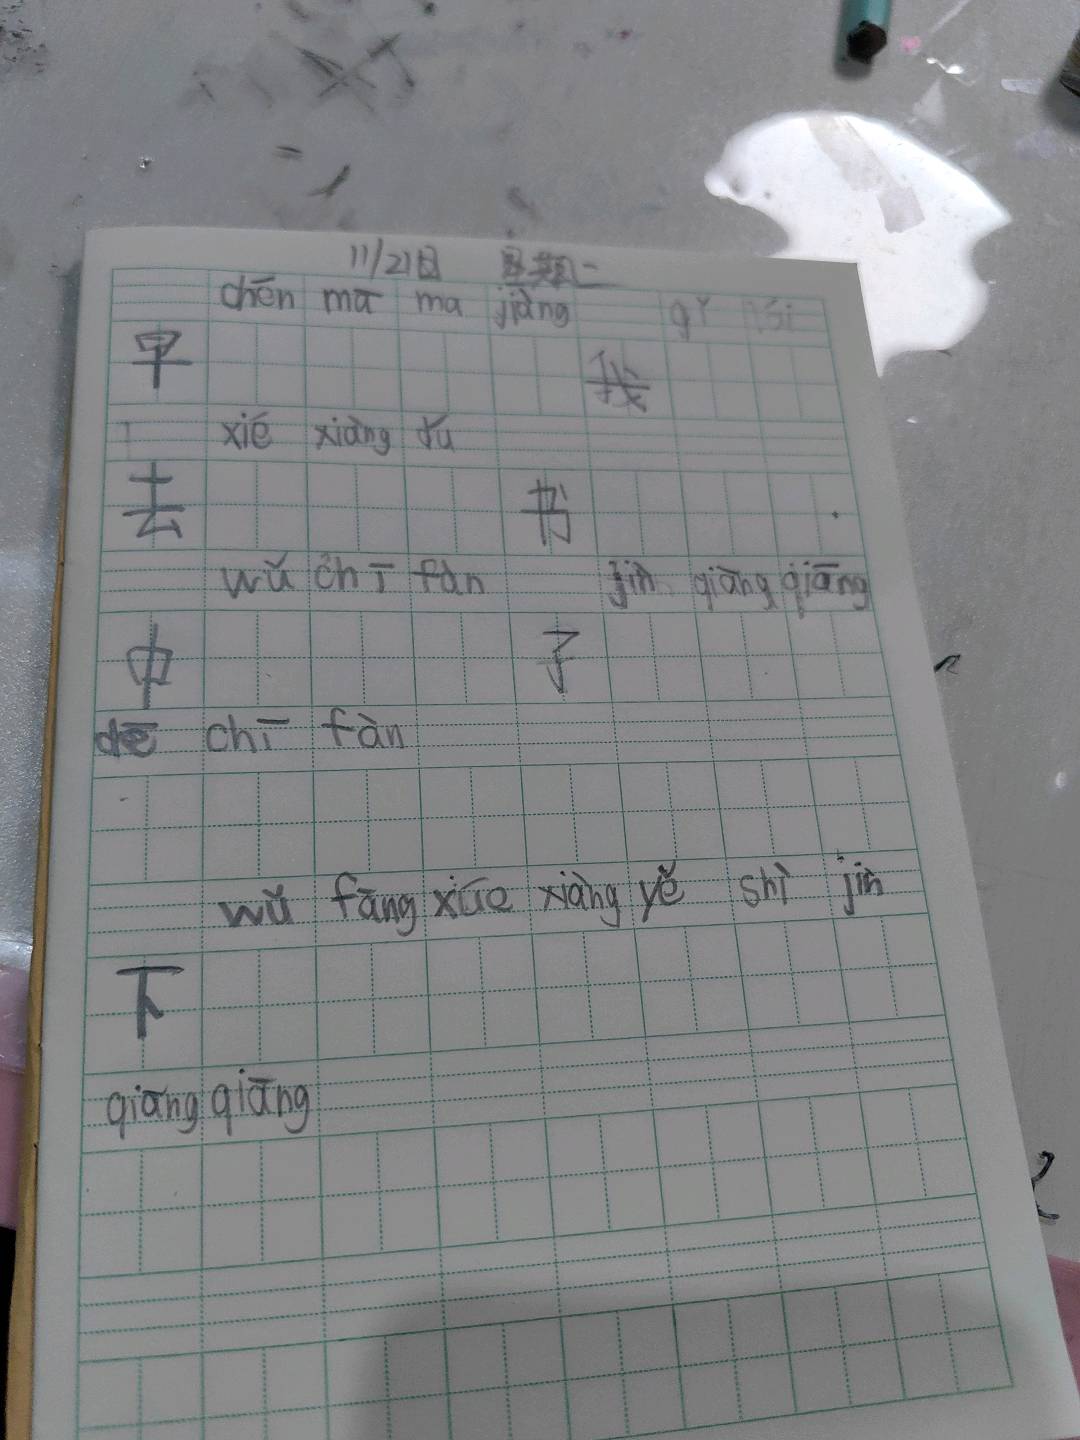 11/21日 星期二
chēn mā ma jiàng qǐ
早 我
xié xiàng dú
去 书
wǔ chī fàn jìn qiāng qiāng
中 子
de chī fàn
wǔ fāng xúe xiàng yě shì jìn
下
qiāng qiāng